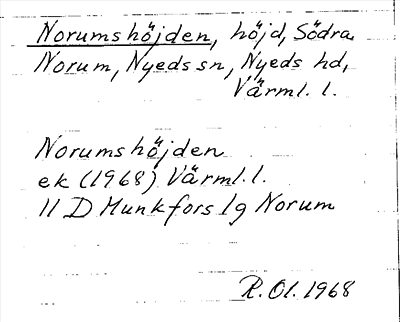 Norumshöjden, höjd, Södra
Norum, Nyeds sn, Nyeds hd,
Värml. l.
Norumshöjden
ek (1968) Värml. l.
11 D Munkfors lg Norum
R. Ol. 1968